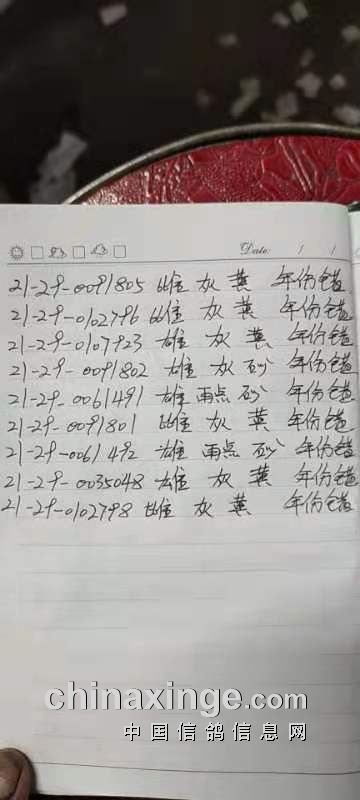 Date: / /
21-29-0091805 雌 灰 黄 年份错
21-29-0102796 雌 灰 黄 年份错
21-29-0107923 雄 灰 黄 年份错
21-29-0091802 雄 灰 砂 年份错
21-29-0061491 雄 雨点 砂 年份错
21-29-0091801 雌 灰 黄 年份错
21-29-0061492 雄 雨点 砂 年份错
21-29-0035048 雄 灰 黄 年份错
21-29-0102798 雌 灰 黄 年份错
chinaxinge.com
中国信鸽信息网